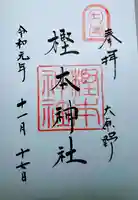 奉拝
大原野
樫本神社
樫本神社
令和元年
十一月十七日